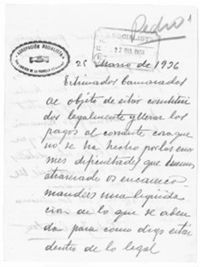 Pedro
AGRUPACION SOCIALISTA
SOCIALIST
25 Marzo de 1936
Estimados Camaradas
al objeto de estar constitui
dos legalmente y llevar los
pagos al corriente cosa que
no se ha hecho por las enor
mes dificultades que hemos
atravesado os encarecemos
mandeis una liquida
cion de lo que se adeu
da para como digo estar
dentro de lo legal